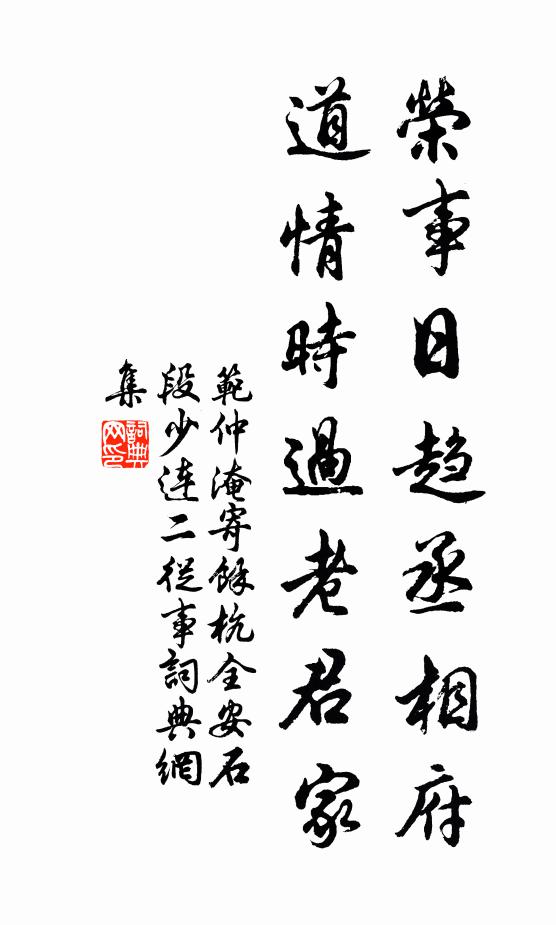 榮事日趨丞相府
道情時過老君家
範仲淹寄餘杭全安石
段少連二從事詞典網
集
詞典
网印